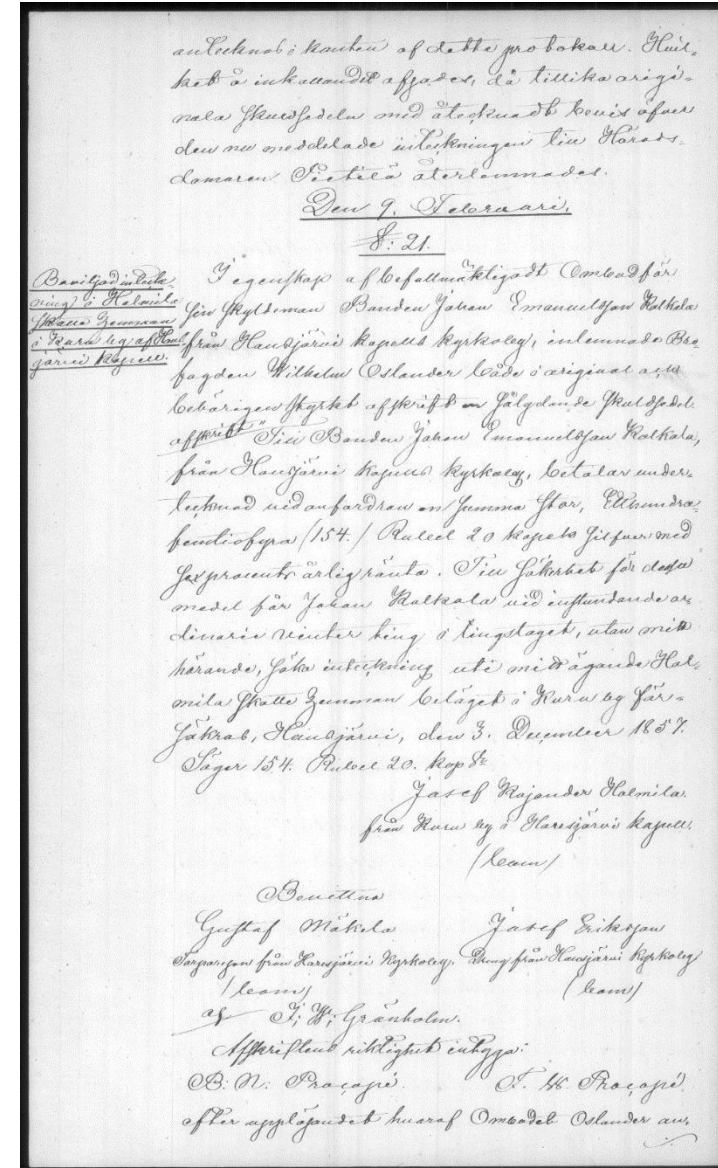 antecknas i kanten af detta protokoll. Hvil-
ket å inkallandet afsades, då tillika origi-
nala skuldsedeln med åtecknadt bevis öfver
den nu meddelade inteckningen till Härads-
domaren Pietilä återlemnades.
Den 9. Februari.
§: 21.
Beviljad inteck-
ning i Holmila
skatte hemman
i Kuru by af Hau-
järvi kapell.
I egenskap af befullmäktigadt Ombud för
sin skyldeman Bonden Johan Emanuelsson Kolkala
från Hausjärvi kapells kyrkoby, inlemnade
fogden Wilhelm Oslander både i original och
behörigen styrkt afskrift en följande skuldsedel
afskrift "Till Bonden Johan Emanuelsson Kolkala,
från Hausjärvi kapells kyrkoby, betalar under-
tecknad vid anfordran en summa stor, Etthundra-
femtiofyra /154./ Rubel 20 kopek silfver med
sex procents årlig ränta. Till säkerhet för dessa
medel får Johan Kolkala vid instundande or-
dinarie vinter ting i tingslaget, utan mitt
hörande, söka inteckning uti mitt ägande Hol-
mila skatte hemman beläget i Kuru by för-
säkras, Hausjärvi, den 3. December 1857.
Säger 154. Rubel 20. kop Sr
Josef Kajander Holmila.
från Kuru by i Hausjärvi kapell.
/bom/
Bevittna
Gustaf Mäkelä Josef Eriksson
Torparson från Hausjärvi Kyrkoby. Dräng från Hausjärvi kyrkoby
/bom/ (bom)
af J: W: Granholm.
Afskriftens riktighet intyga:
B: N: Procopé. F. W. Procopé.
efter uppläsandet hvaraf Ombudet Oslander an-